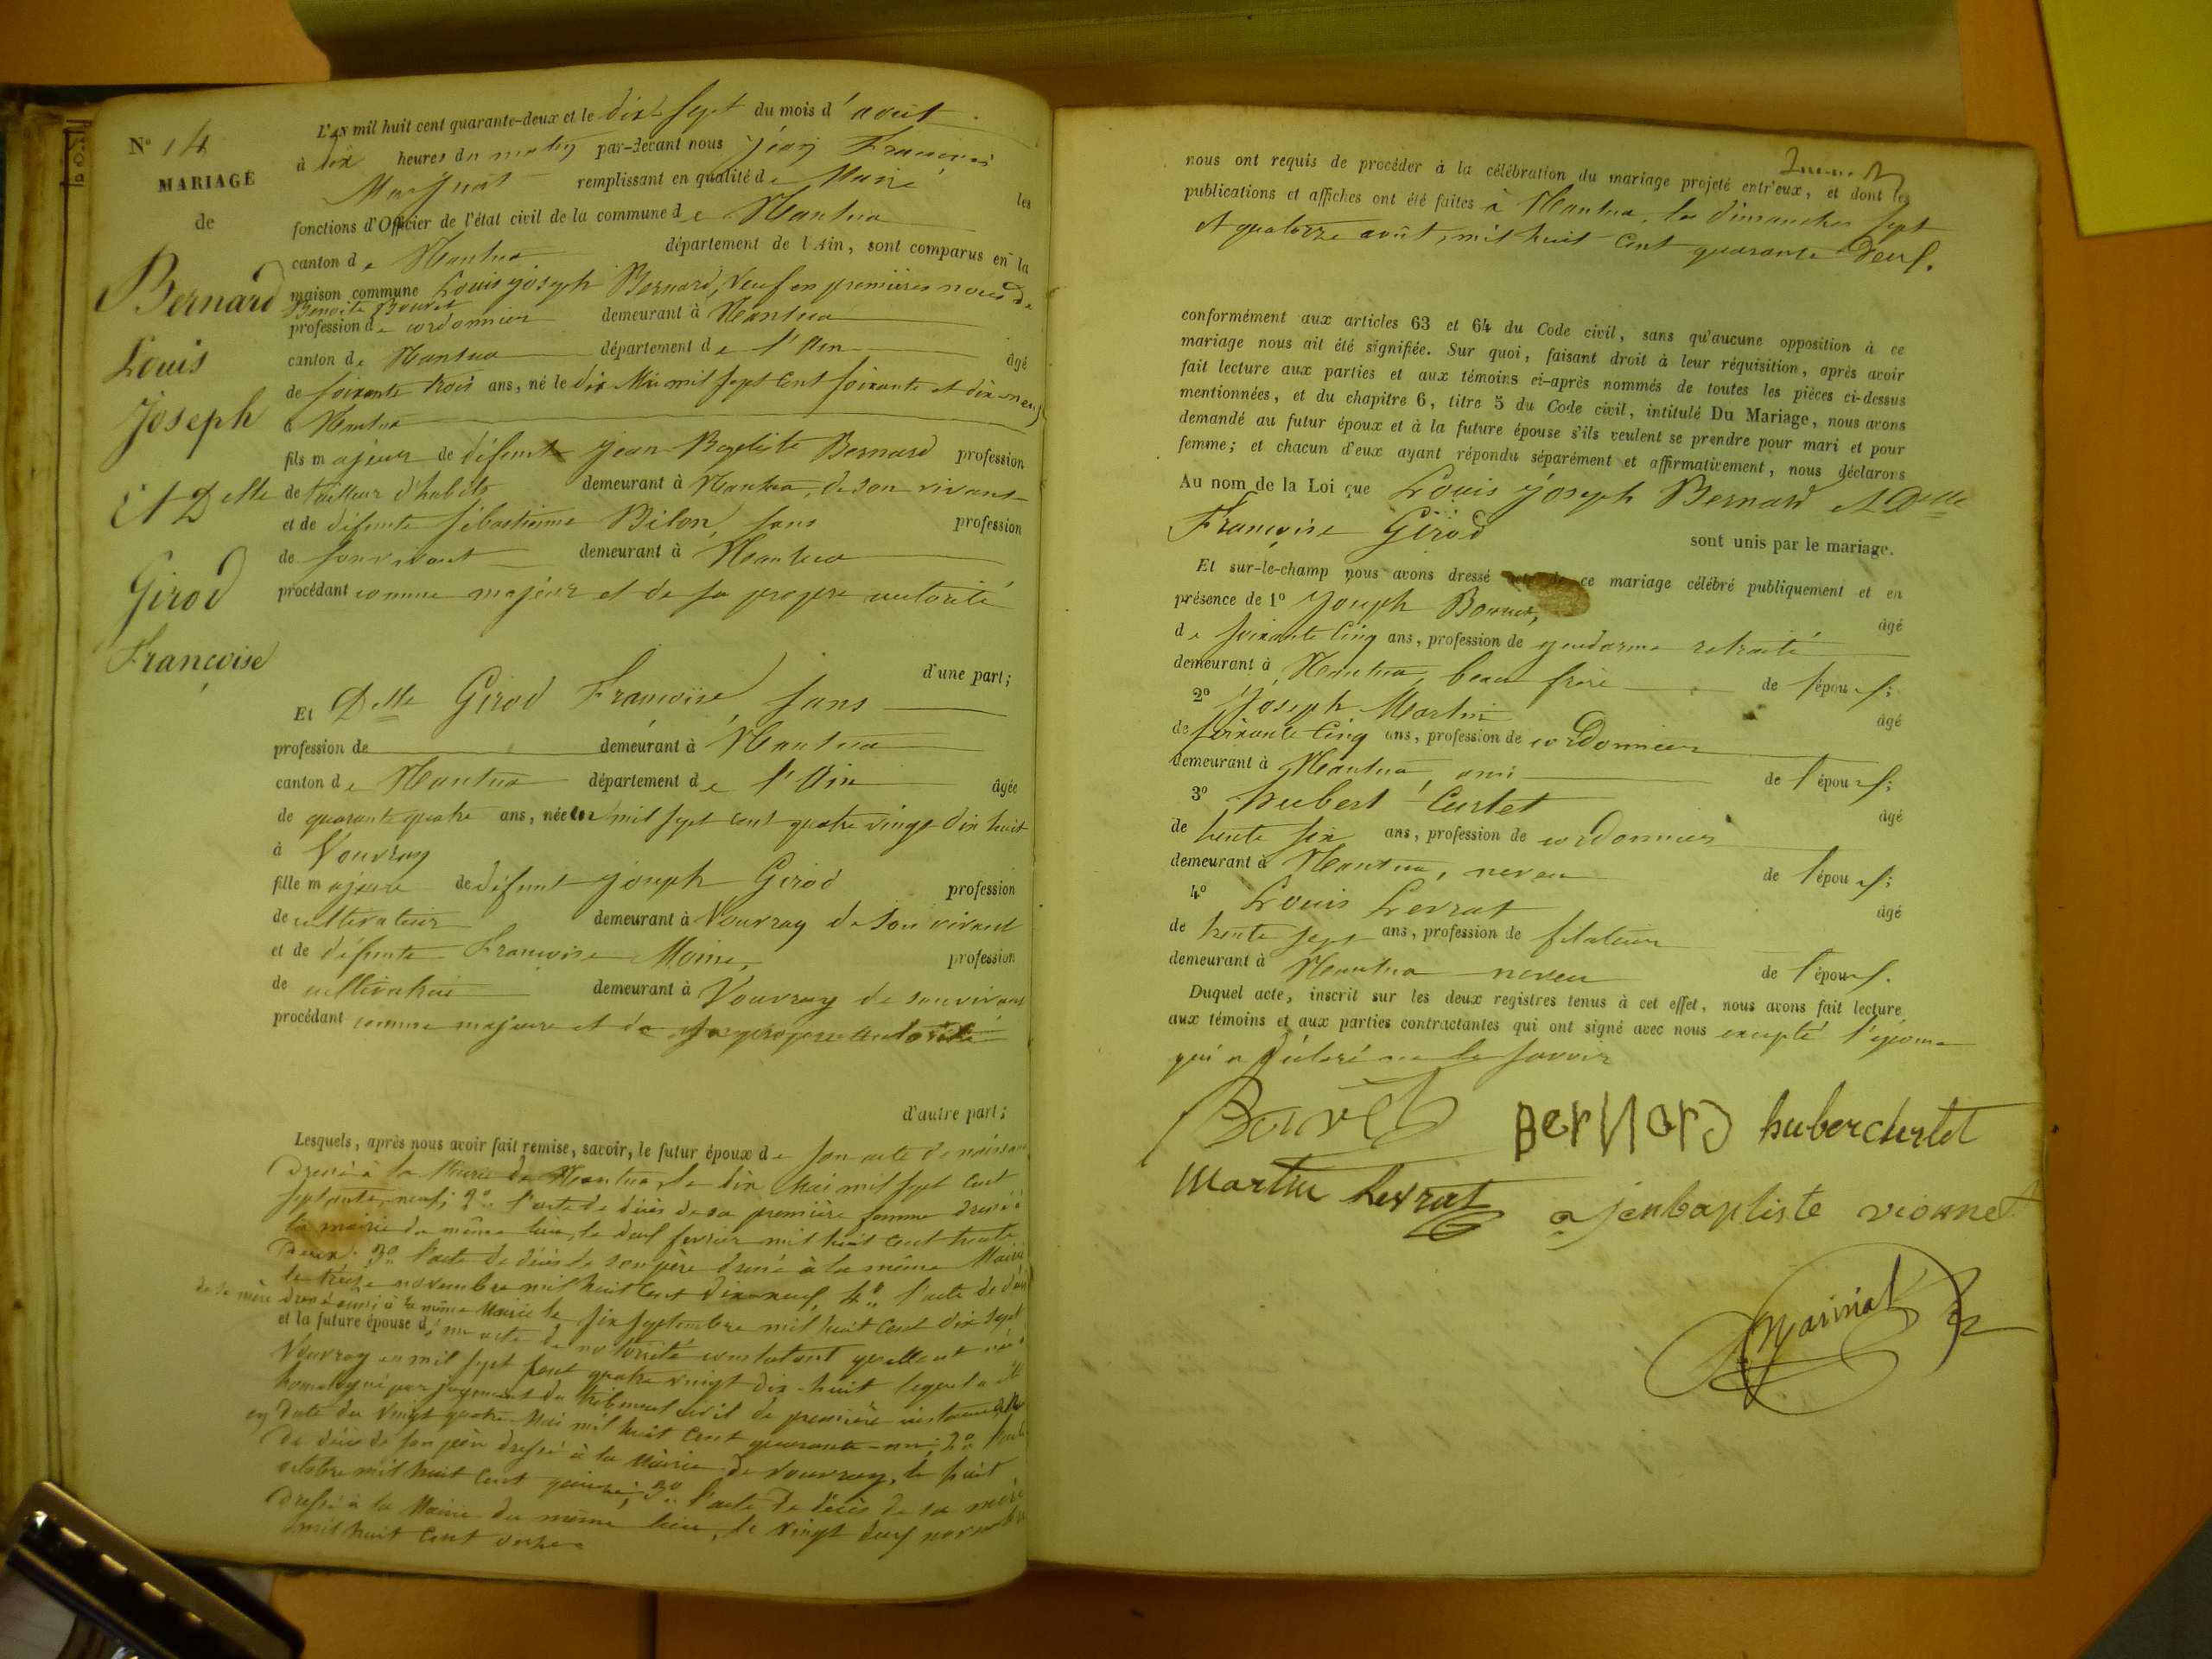 N° 14
MARIAGE
de
Bernard
Louis
Joseph
Et Delle
Girod
Françoise
L'an mil huit cent quarante-deux et le dix Sept du mois d'août
à dix heures du matin par-devant nous Jean François
remplissant en qualité de Maire les
fonctions d'Officier de l'état civil de la commune de Nantua
canton de Nantua département de l'Ain, sont comparus en la
maison commune Louis joseph Bernard, Veuf en premières noces de
Benoite Bouvet
profession de cordonnier demeurant à Nantua
canton de Nantua département de l'Ain âgé
de soixante trois ans, né le dix Mai mil sept cent soixante et dix neuf
à Nantua
fils majeur de défunt Jean Baptiste Bernard profession
de tailleur d'habits demeurant à Nantua, de son vivant
et de défunte Sébastienne Bilon, sans profession
de son vivant demeurant à Nantua
procédant comme majeur et de sa propre autorité
d'une part;
Et Delle Girod Françoise sans
profession de demeurant à Nantua
canton de Nantua département de l'Ain âgée
de quarante quatre ans, née en mil sept cent quatre vingt dix huit
à Vouvray
fille majeure de défunt joseph Girod profession
de cultivateur demeurant à Vouvray de son vivant
et de défunte Françoise Moine, profession
de cultivatrice demeurant à Vouvray de son vivant
procédant comme majeure et de sa propre autorité
d'autre part;
Lesquels, après nous avoir fait remise, savoir, le futur époux de son acte de naissance
dressé à la Mairie de Nantua le dix Mai mil sept cent
septante neuf; 2° l'acte de décès de sa première femme dressé à
la mairie du même lieu, le deux fevrier mil huit cent trente
deux. 3° l'acte de décès de son père dressé à la même Mairie
le treize novembre mil huit cent dix neuf, 4° l'acte de décès
de sa mère dressé aussi à la même Mairie le six septembre mil huit cent dix sept
et la future épouse d'un acte de notoriété constatant qu'elle est née à
Vouvray en mil sept cent quatre vingt dix-huit lequel a été
homologué par jugement du tribunal civil de première instance
en date du vingt quatre Mai mil huit cent quarante-un; 2° l'acte
de décès de son père dressé à la Mairie de Vouvray, le huit
octobre mil huit cent quinze; 3° l'acte de décès de sa mère
dressé à la Mairie du même lieu, le vingt deux novembre
mil huit cent onze
nous ont requis de procéder à la célébration du mariage projeté entr'eux, et dont les
publications et affiches ont été faites à Nantua, les dimanches sept
et quatorze août, mil huit cent quarante deux.
conformément aux articles 63 et 64 du Code civil, sans qu'aucune opposition à ce
mariage nous ait été signifiée. Sur quoi, faisant droit à leur réquisition, après avoir
fait lecture aux parties et aux témoins ci-après nommés de toutes les pièces ci-dessus
mentionnées, et du chapitre 6, titre 5 du Code civil, intitulé Du Mariage, nous avons
demandé au futur époux et à la future épouse s'ils veulent se prendre pour mari et pour
femme; et chacun d'eux ayant répondu séparément et affirmativement, nous déclarons
Au nom de la Loi que Louis Joseph Bernard et Delle
Françoise Girod sont unis par le mariage.
Et sur-le-champ nous avons dressé ce mariage célébré publiquement et en
présence de 1° Joseph Bouvet, âgé
de soixante cinq ans, profession de gendarme retraité
demeurant à Nantua, beau frère de l'époux;
2° Joseph Martin âgé
de soixante cinq ans, profession de cordonnier
demeurant à Nantua, ami de l'époux;
3° hubert Curtet âgé
de trente six ans, profession de cordonnier
demeurant à Nantua, neveu de l'époux;
4° Louis Levrat âgé
de trente sept ans, profession de filateur
demeurant à Nantua neveu de l'époux.
Duquel acte, inscrit sur les deux registres tenus à cet effet, nous avons fait lecture
aux témoins et aux parties contractantes qui ont signé avec nous excepté l'épouse
qui a déclaré ne le savoir
Bouvet Bernard huber curtet
Martin Levrat jenbaptiste vionnet